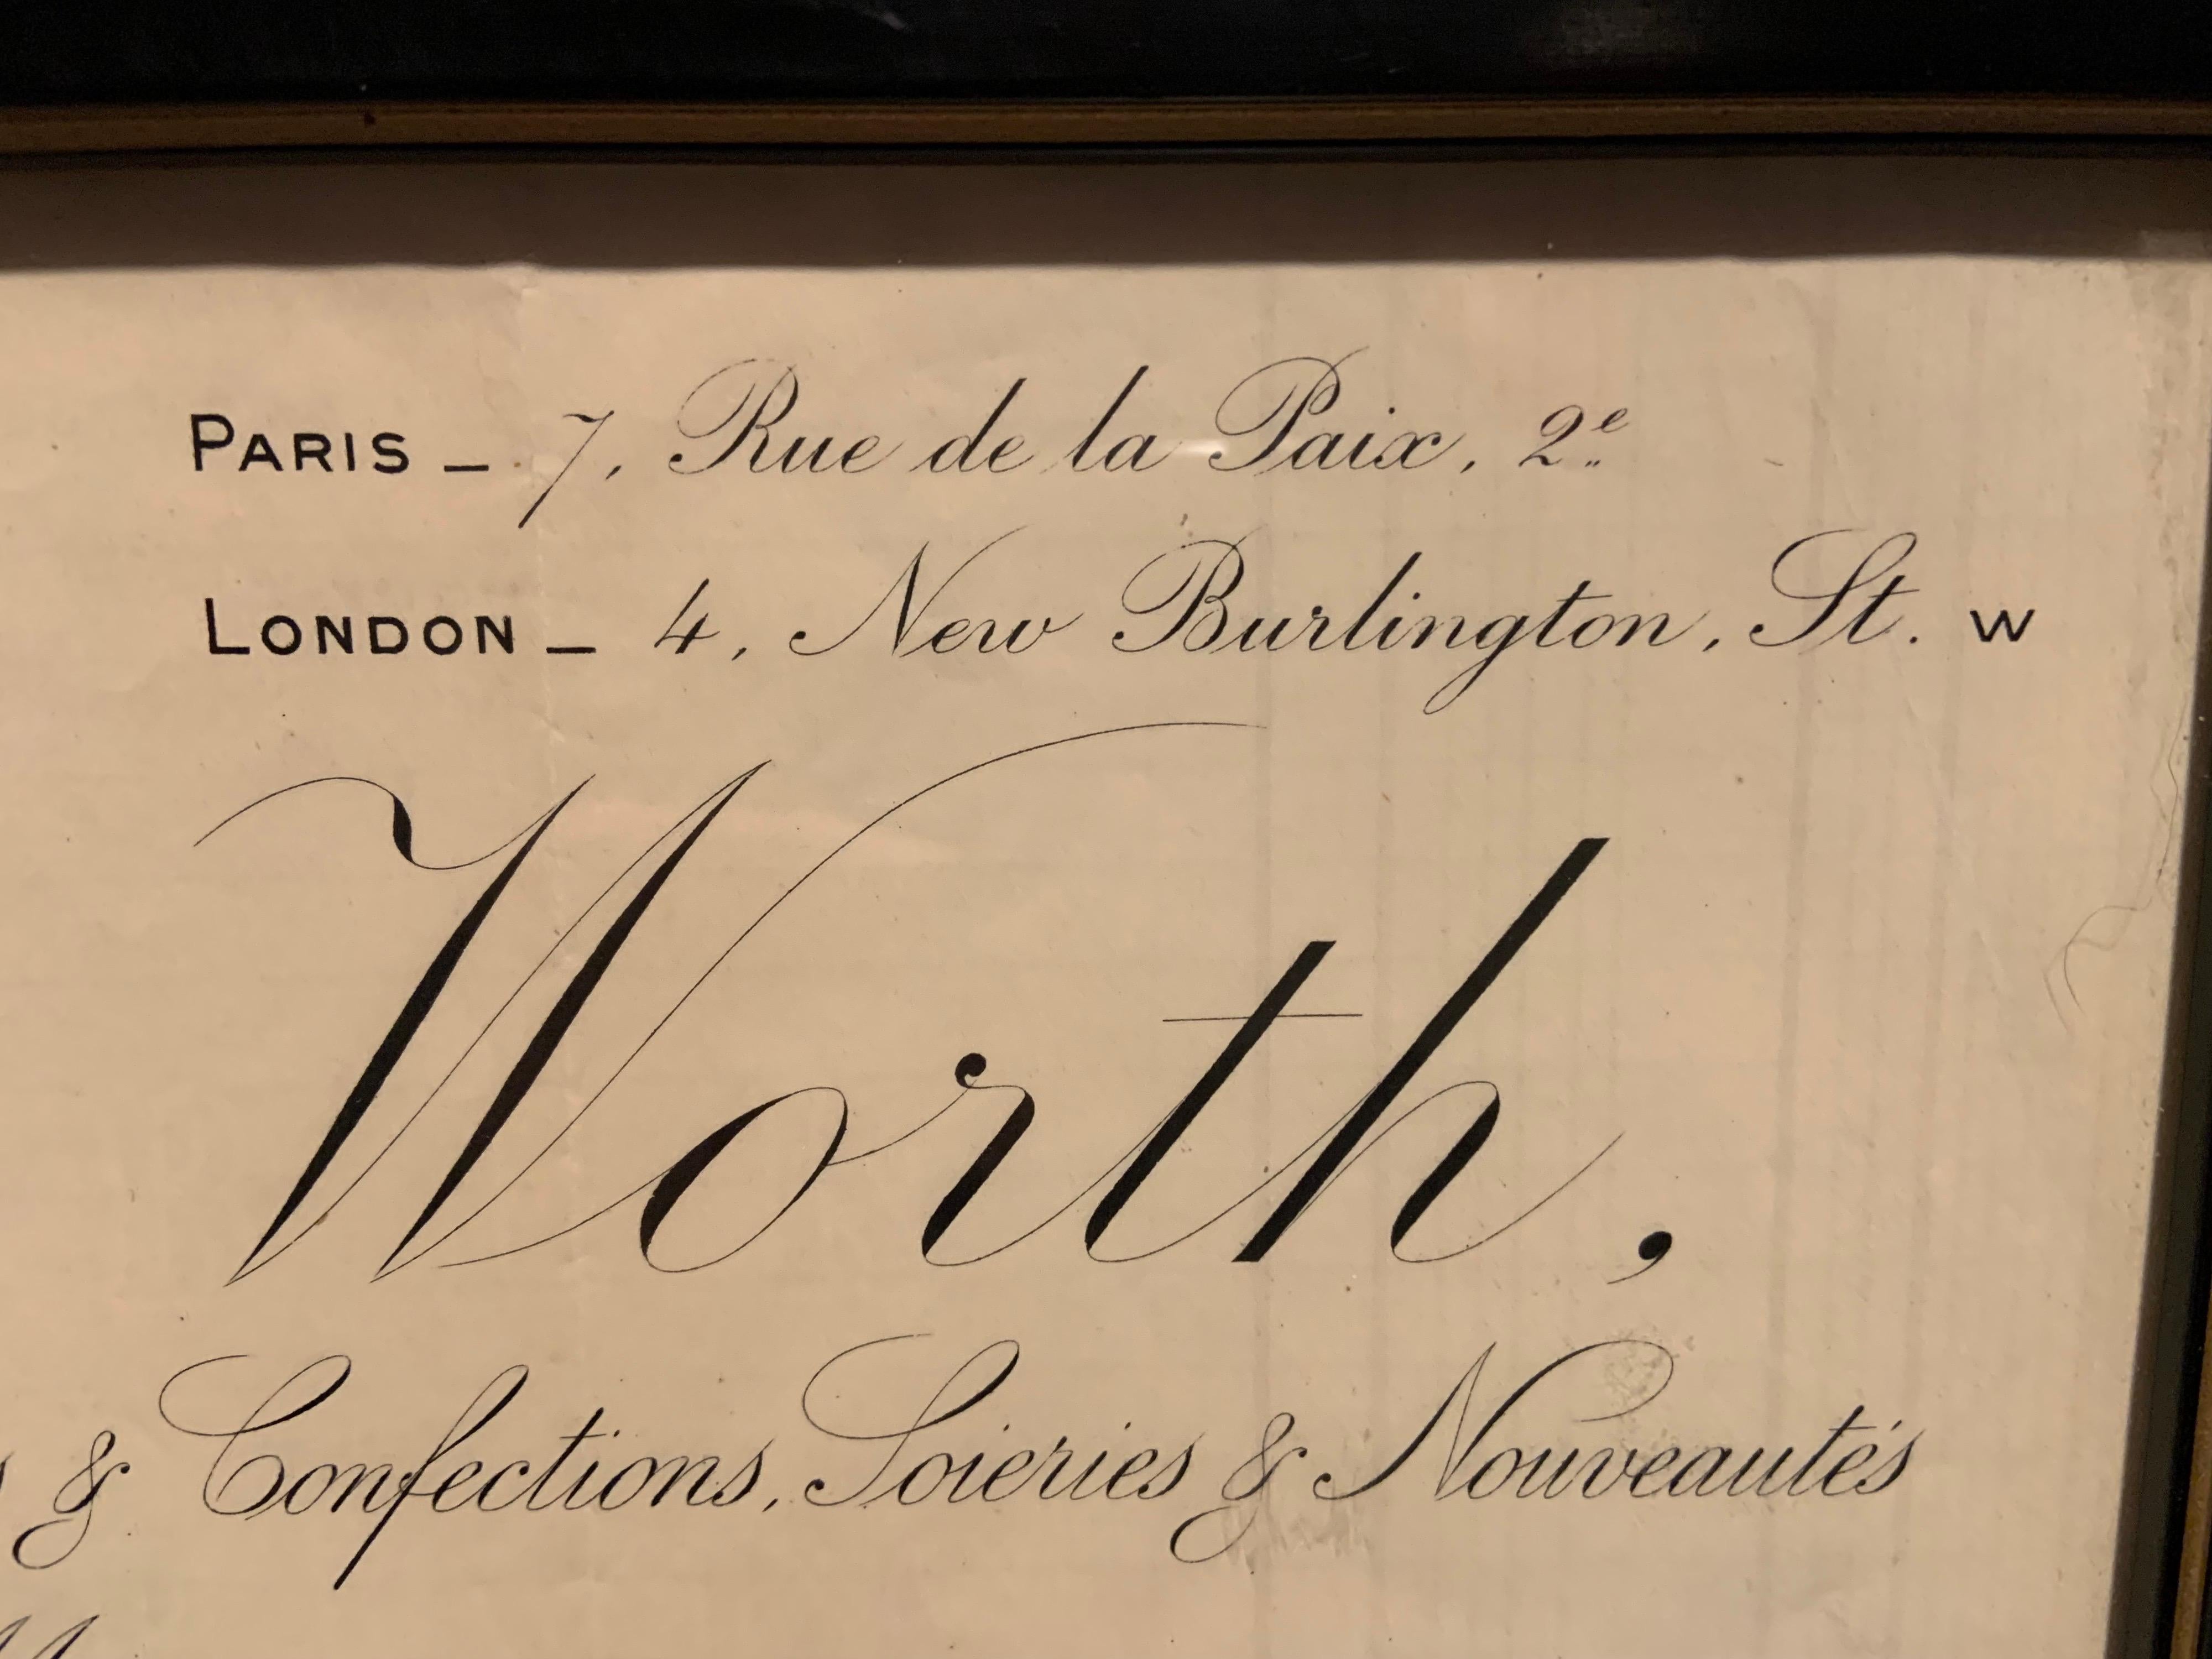 PARIS _ 7, Rue de la Paix, 2e
LONDON _ 4, New Burlington, St. W
Worth,
& Confections, Soieries & Nouveautés